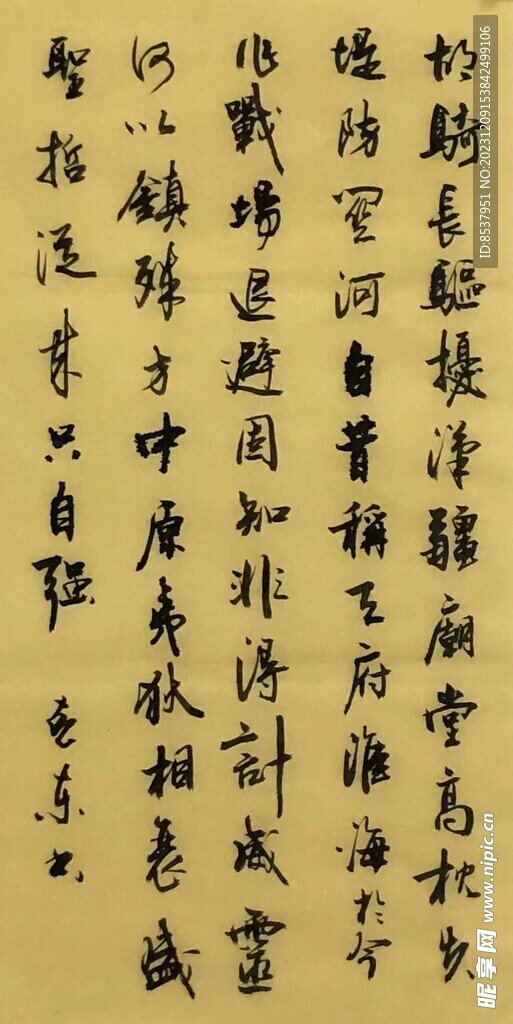 胡騎長驅擾漢疆廟堂高枕失
堤防關河自昔稱天府淮海於今
作戰場退避固知非得計威靈
何以鎮殊方中原夷狄相衰盛
聖哲從來只自强
東書
ID:8537951 NO:20231209153842499106
昵享网 www.nipic.cn